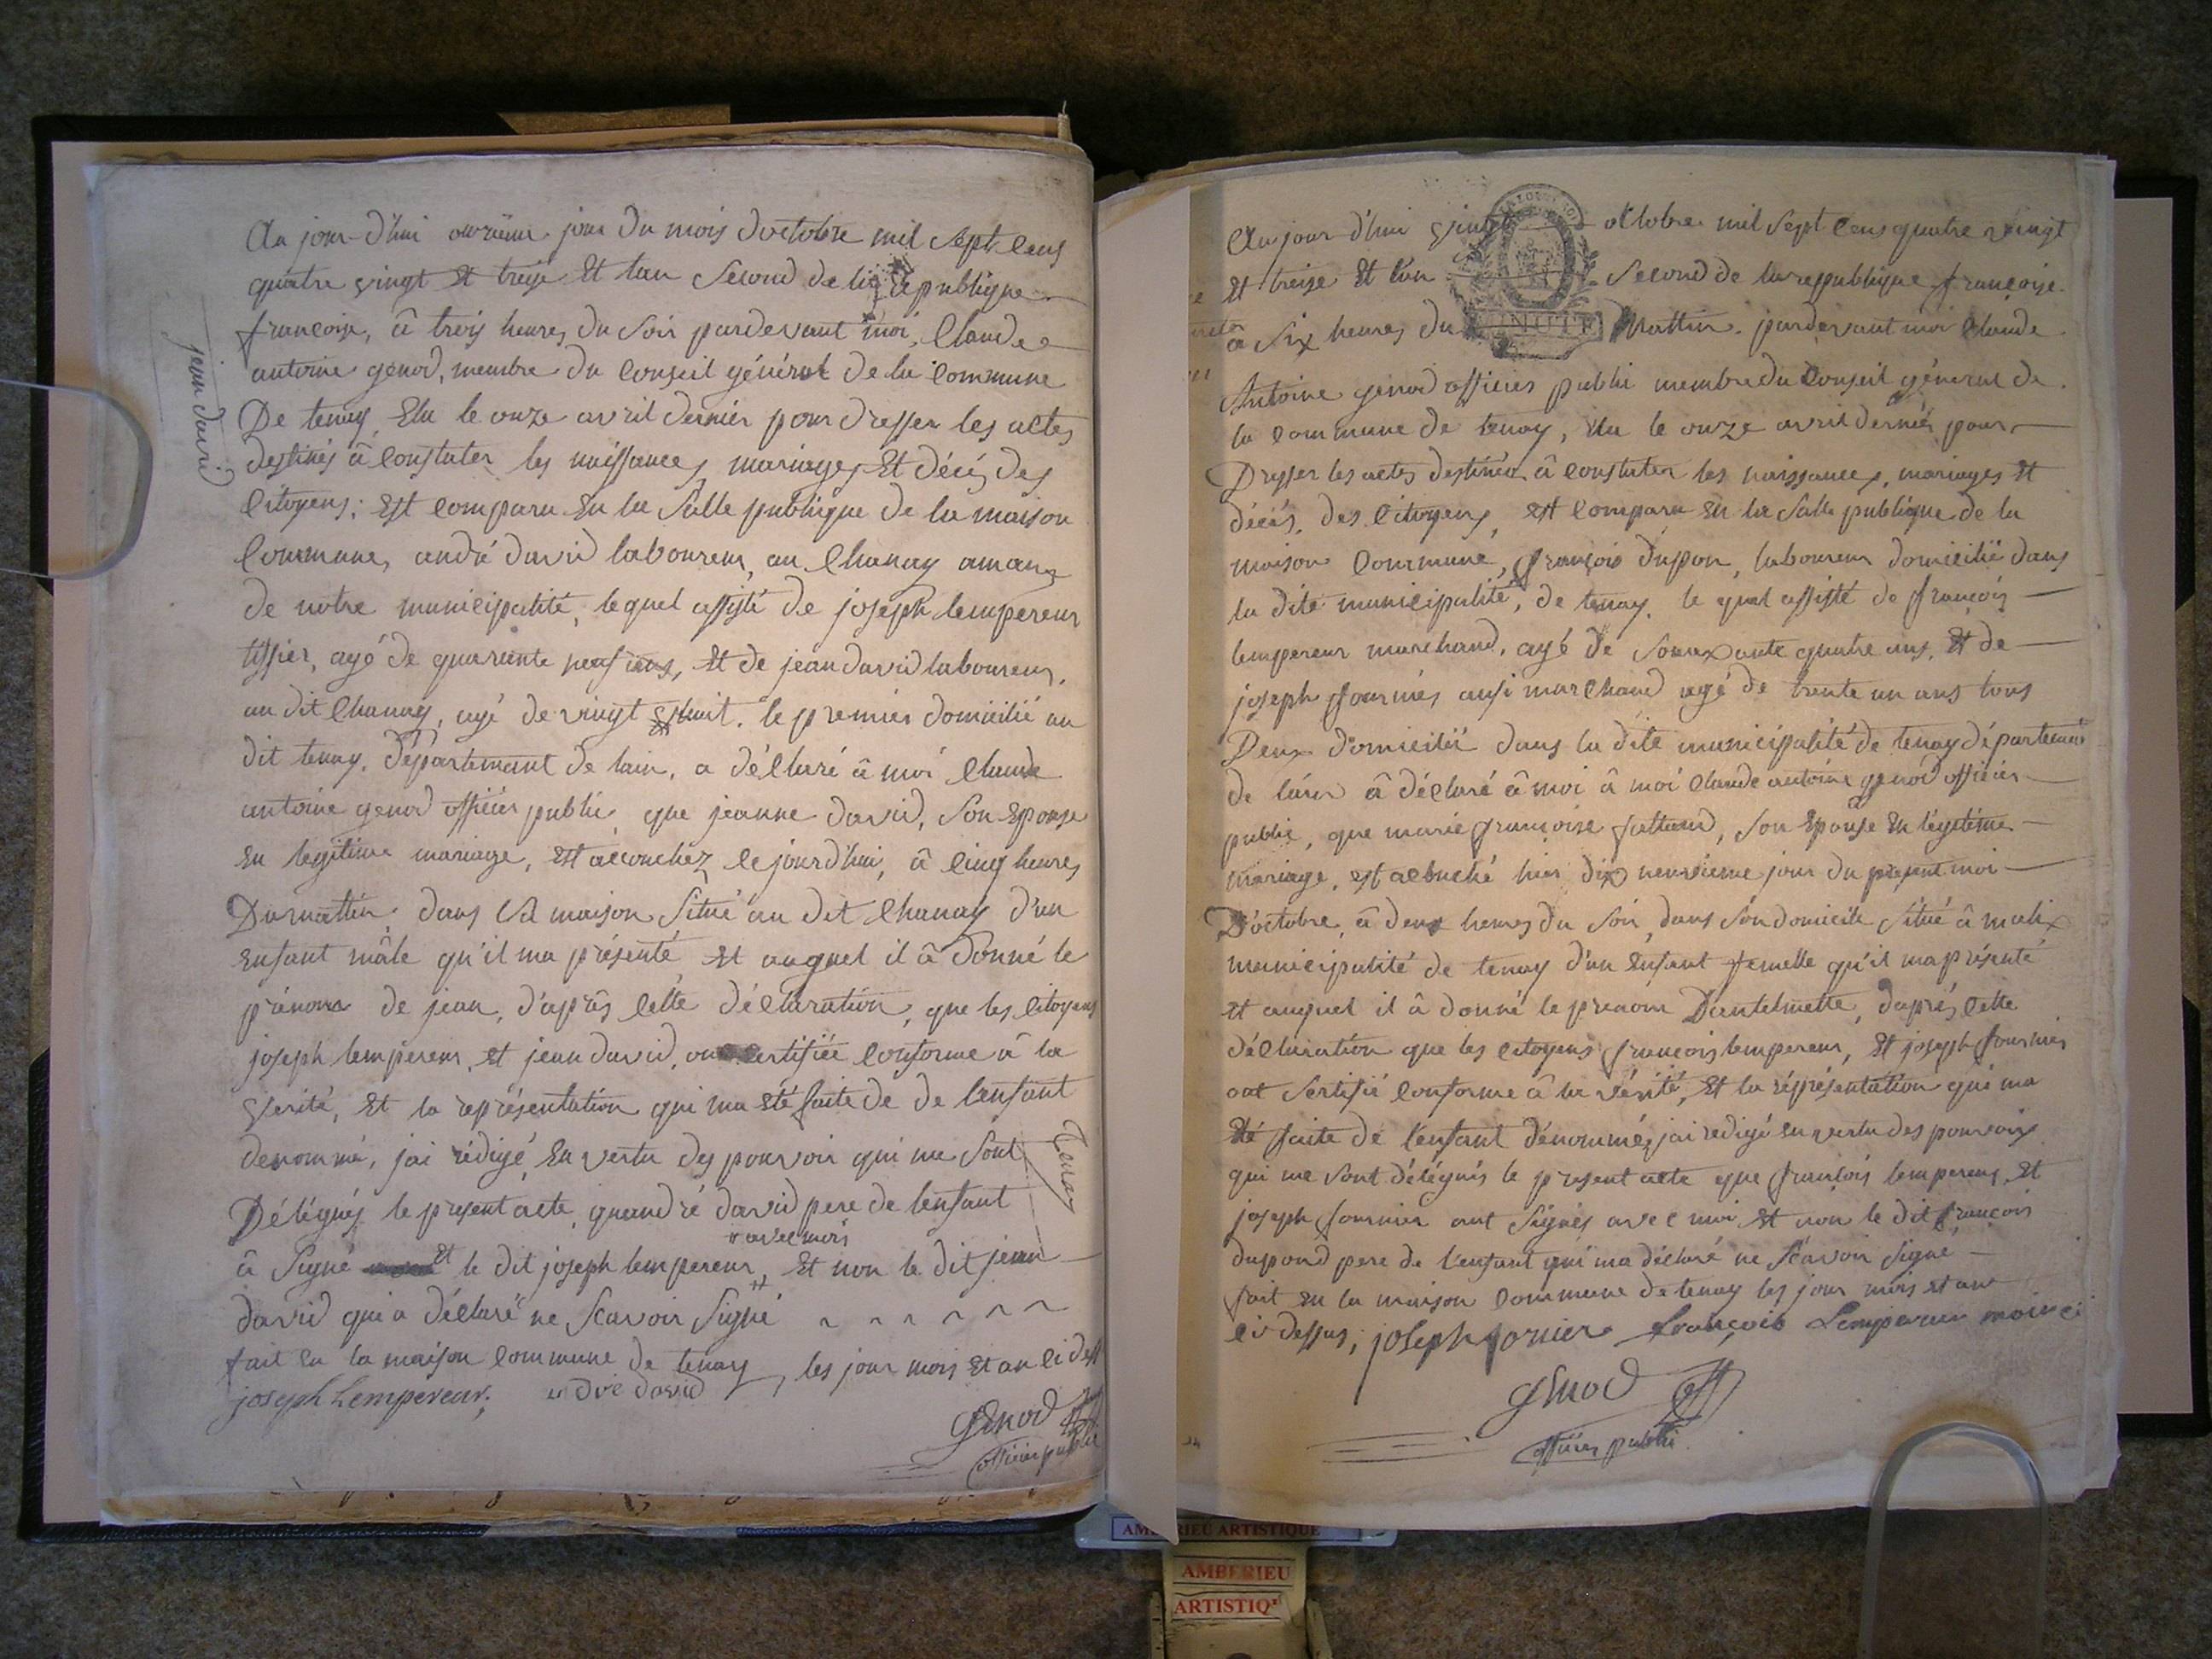 jean david
Au jour-d'hui onzieme jour du mois doctobre mil sept cens
quatre vingt et treize et lan second de la republique
francoise, â trois heures du soir pardevant moi, Claude
antoine genod, membre du Conseil général de la commune
De tenay, Elu le onze avril dernier pour dresser les actes
destinés â constater les naissances, mariages et décés des
Citoyens; est comparu en la salle publique de la maison
Commune, andré david laboureur, au Chanay
de notre municipalité, lequel assisté de joseph lempereur
tissier, agé de quarente neuf ans, et de jean david laboureur,
au dit Chanay, agé de vingt huit, le premier domicilié au
dit tenay, département de lain, a déclaré â moi Claude
antoine genod officier public, que jeanne david, son Epouse
en legitime mariage, est accouchez cejourd'hui, â cinq heures
Du mattin, dans sa maison situé au dit Chanay d'un
enfant mâle qu'il ma présenté et auquel il â donné le
prénom de jean, d'aprâs cette déclaration, que les citoyens
joseph lempereur, et jean david, ont certifiée conforme â la
verité, et la représentation qui ma été faite de de l'enfant
denommé, jai rédigé, en vertu des pouvoir qui me sont
Délégués le present acte, quandré david pere de lenfant
# avec moi
â signé et le dit joseph lempereur # et non le dit jean
david qui a déclaré ne scavoir signé
fait en la maison commune de tenay, les jour mois et an ci dess
joseph Lempereur, andré david
Tenay
Genod
officier public
AMBERIEU ARTISTIQUE
AMBERIEU
ARTISTIQ
MINUTE
Aujour-d'hui vintx octobre mil sept cens quatre vingt
et treize et lan second de la republique françoise
â six heures du Mattin, pardevant moi Claude
Antoine genod officier public membre du Conseil général de
la commune de tenay, élu le onze avril dernier pour
Dresser les actes destinés â constater les naissances, mariages et
décés, des Citoyens, est comparu en la salle publique de la
maison Commune, françois dupon, laboureur domicilié dans
la dite municipalité, de tenay, le quel assisté de françois
lempereur marchand, agé de souexante quatre ans, et de
joseph fournier ausi marchand agé de trente un ans tous
Deux domicilié dans la dite municipalité de tenay département
de lain â déclaré â moi â moi Claude antoine genod officier
public, que marie françoise, son Epouse en légitime
mariage, est acouché hier dix neuvieme jour du present moi
D'octobre, â deux heures du soir, dans son domicile situé â malix
municipalité de tenay d'un enfant femelle qu'il ma présenté
et auquel il â donné le prenom Dantelmette, daprés cette
déclaration que les citoyens françois lempereur, et joseph fournier
ont sertifié conforme â la vérité, et la réprésentation qui ma
été faite de l'enfant dénommé, jai redigé en vertu des pouvoirs
qui me sont délégués le present acte que françois lempereur, et
joseph fournier ont signés avec moi et non le dit françois
dupond pere de l'enfant qui ma déclaré ne scavoir signé
fait en la maison commune de tenay les jour mois et an
ci dessus, joseph fornier françois Lempereur
Genod
officier public